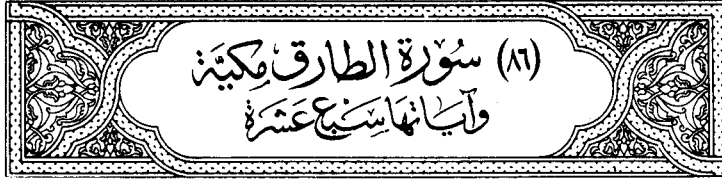 (٨٦) سُوْرَة الطارق مكيَّة
وآياتها سَبْع عَشَرَة